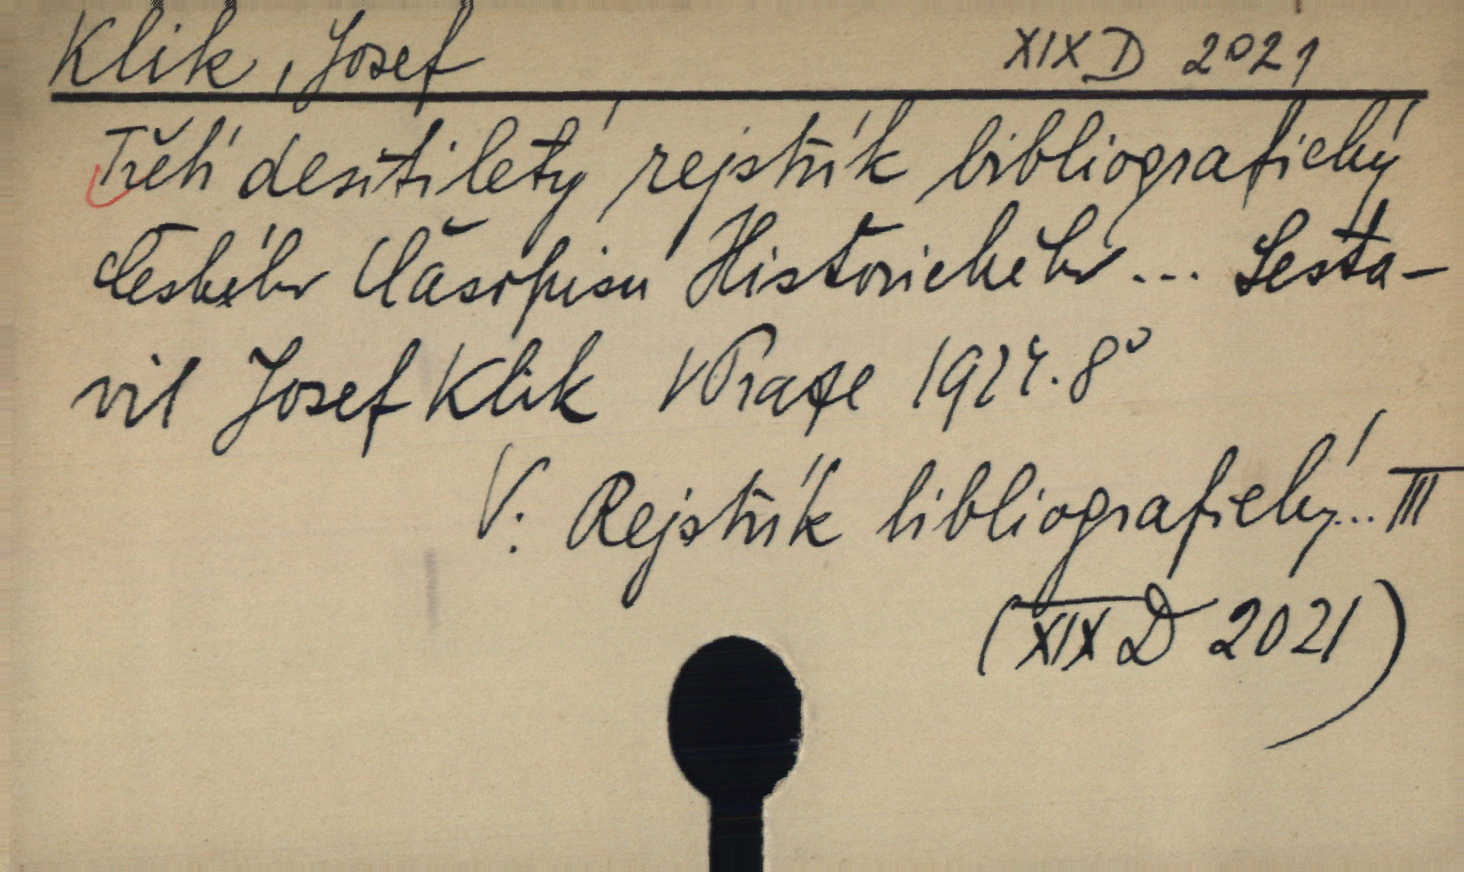 Klik, Josef XIX D 2021
Třetí desítiletý rejstřík bibliografický
Českého Časopisu Historického ... Sesta-
vil Josef Klik V Praze 1924. 8°
V: Rejstřík bibliografický... III
(XIX D 2021)